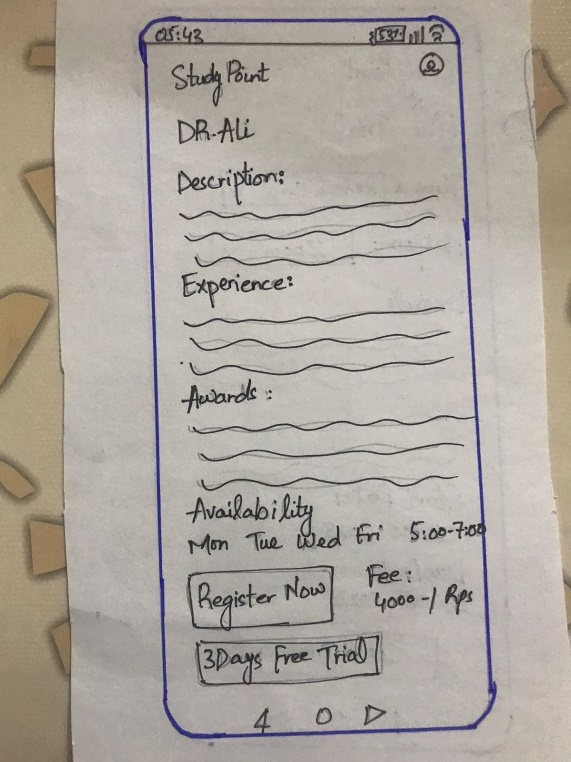 05:43 53%
Study Point
DR. Ali
Description:
Experience:
Awards:
Availability
Mon Tue Wed Fri 5:00-7:00
Register Now
Fee:
4000-/ Rps
3Days Free Trial